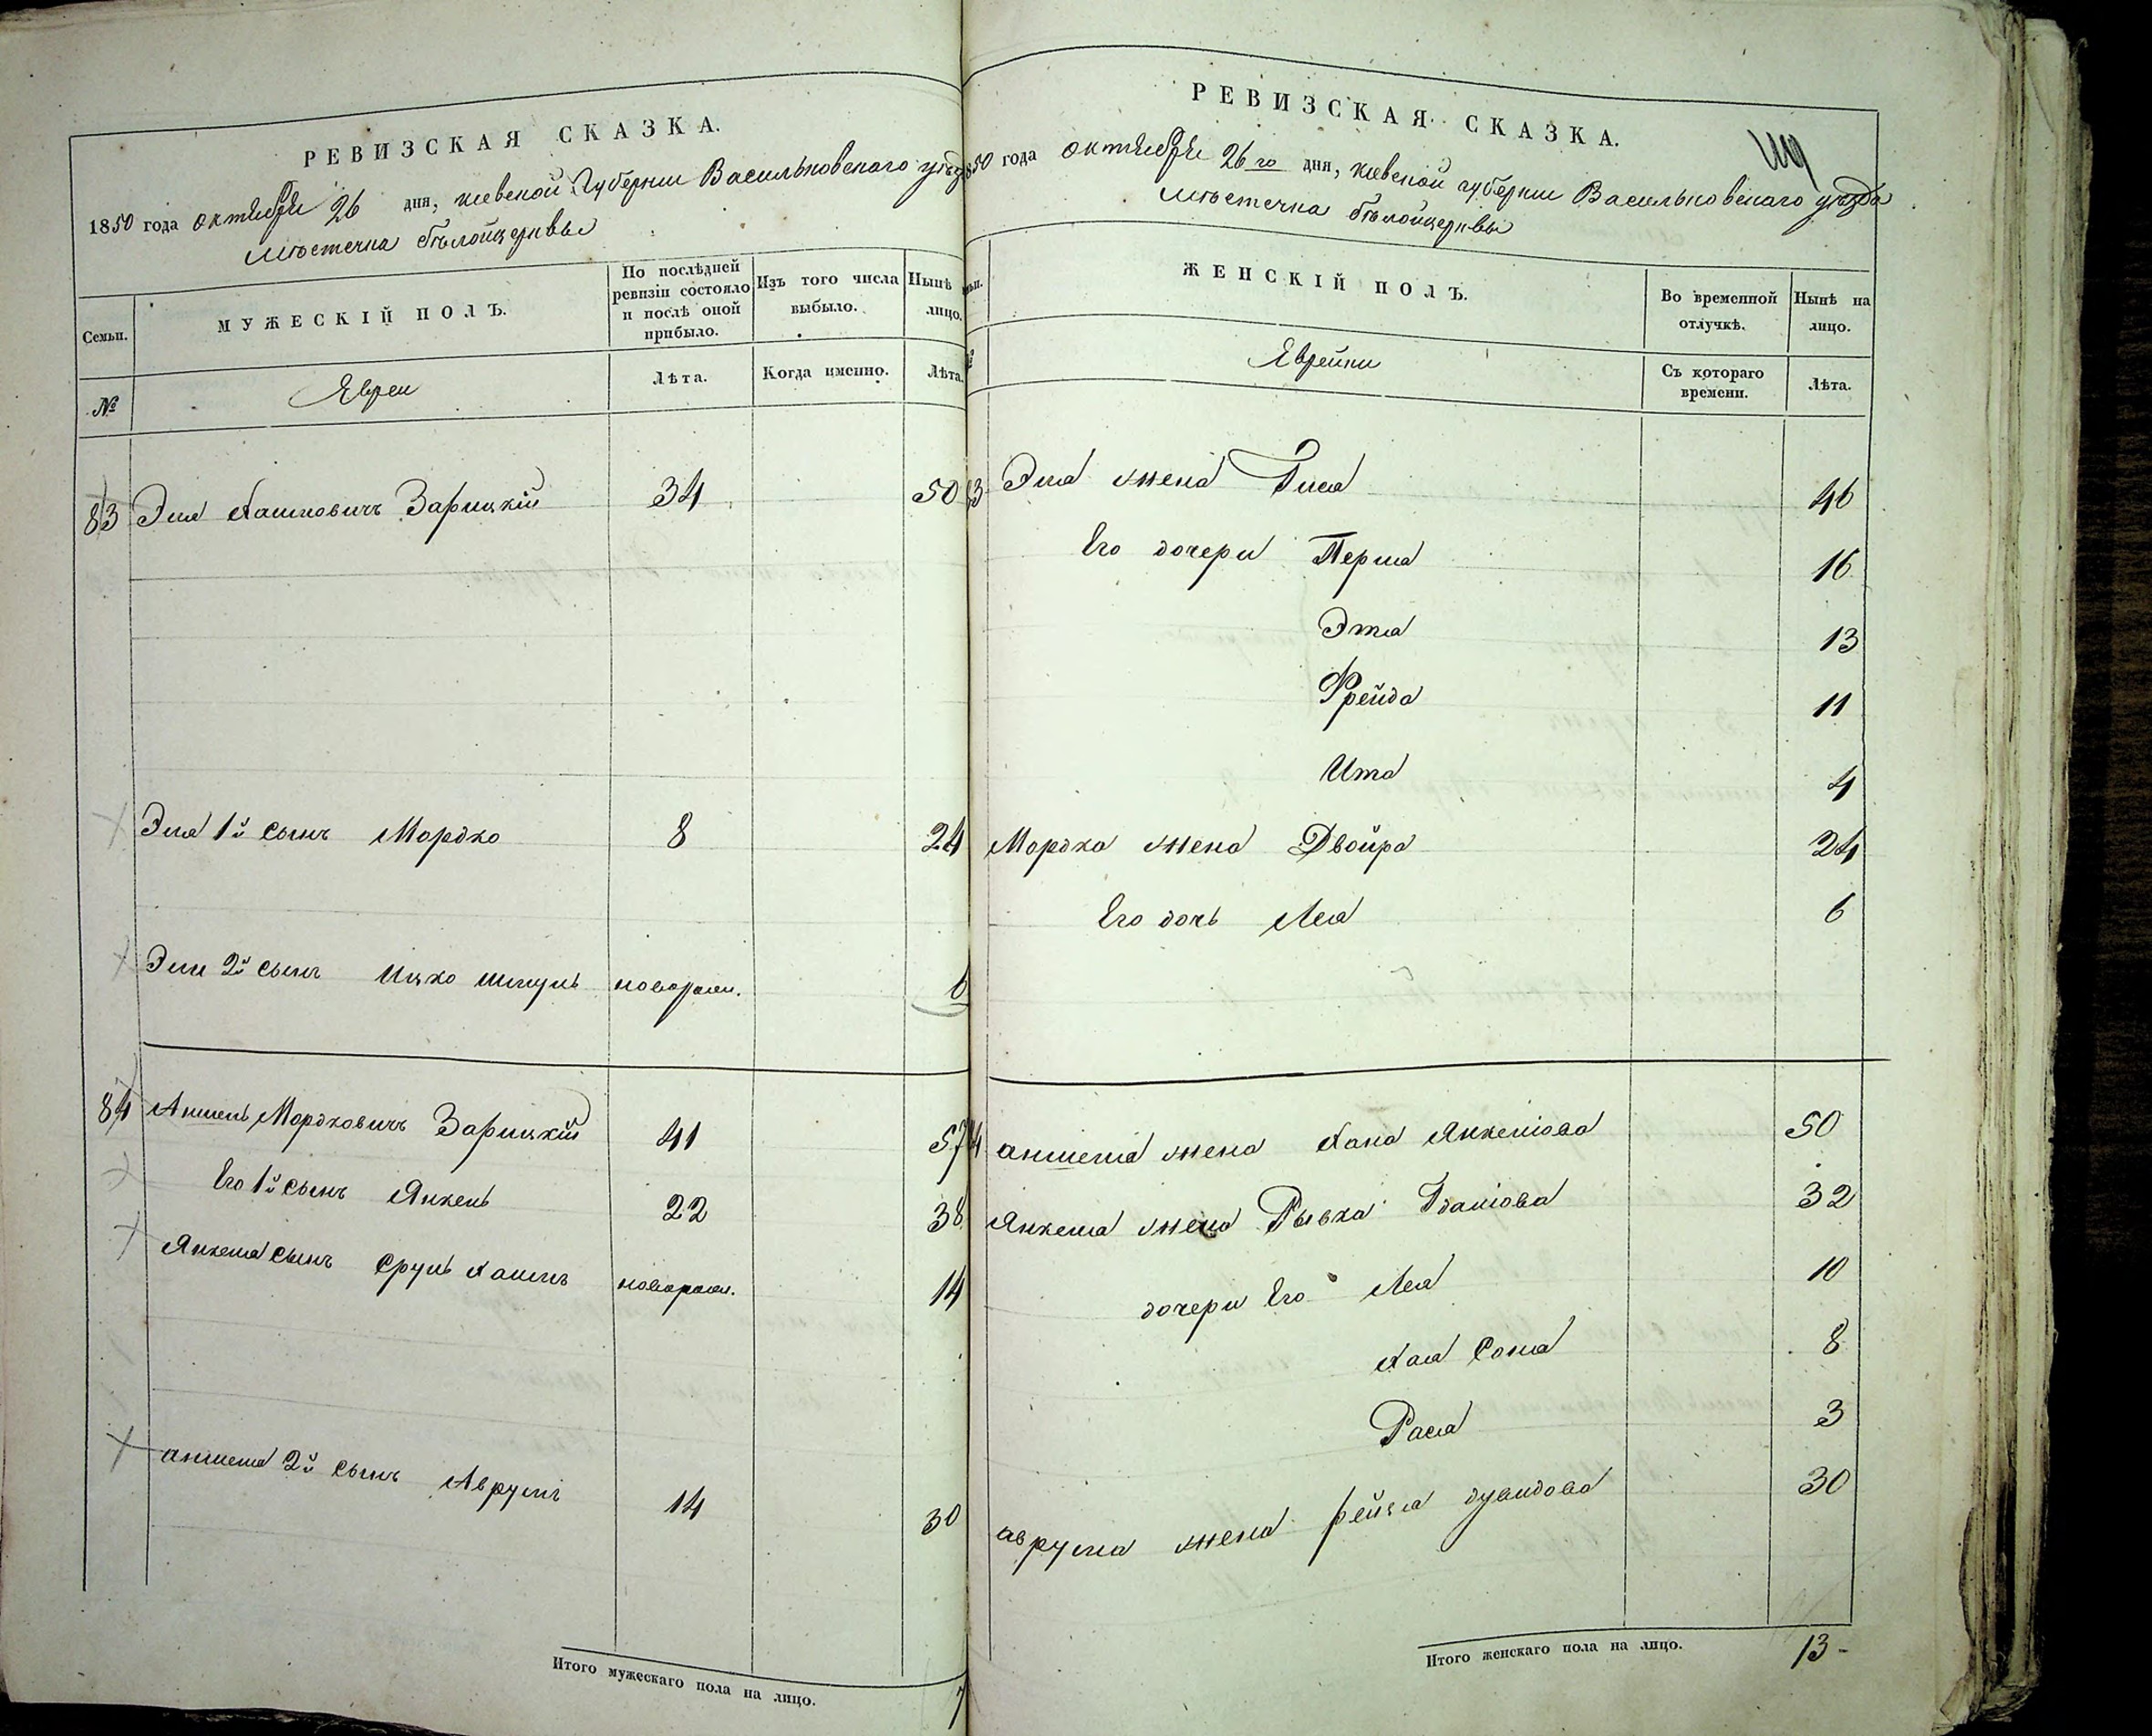 РЕВИЗСКАЯ СКАЗКА.
1850 года октября 26 дня, киевской Губернии Васильковского уезда
мѣстечка бѣлойцерквы
Семьи.
МУЖЕСКІЙ ПОЛЪ.
По послѣдней ревизіи состояло и послѣ оной прибыло.
Изъ того числа выбыло.
Нынѣ
лицо.
№
Евреи
Лѣта.
Когда именно.
Лѣта.
83 Эля Хаимовичъ Зарицкій 34 50
Эля 1й сынъ Мордко 8 24
Эли 2й сынъ Ицко Шмуль новорож. 6
84 Аншель Мордковичъ Зарицкій 41 57
Его 1й сынъ Янкель 22 38
Янкеля сынъ Сруль Хаимъ новорож. 14
аншеля 2й сынъ Аврумъ 14 30
Итого мужескаго пола на лицо. 7
РЕВИЗСКАЯ СКАЗКА.
850 года октября 26го дня, киевской губернии Васильковскаго уѣзда
мѣстечка бѣлойцерквы
ЖЕНСКІЙ ПОЛЪ.
Во временной отлучкѣ.
Нынѣ на лицо.
Еврейки
Съ котораго времени.
Лѣта.
3 Эля жена Гися 46
Его дочери Перля 16
Этя 13
Фрейда 11
Ита 4
Мордка жена Двойра 24
Его дочь Лея 6
4 аншеля жена Хана Янкелiова 50
Янкеля жена Рывка 32
дочери Его Лея 10
Хая Соня 8
Рася 3
аврума жена рейзя дувидова 30
Итого женскаго пола на лицо. 13-